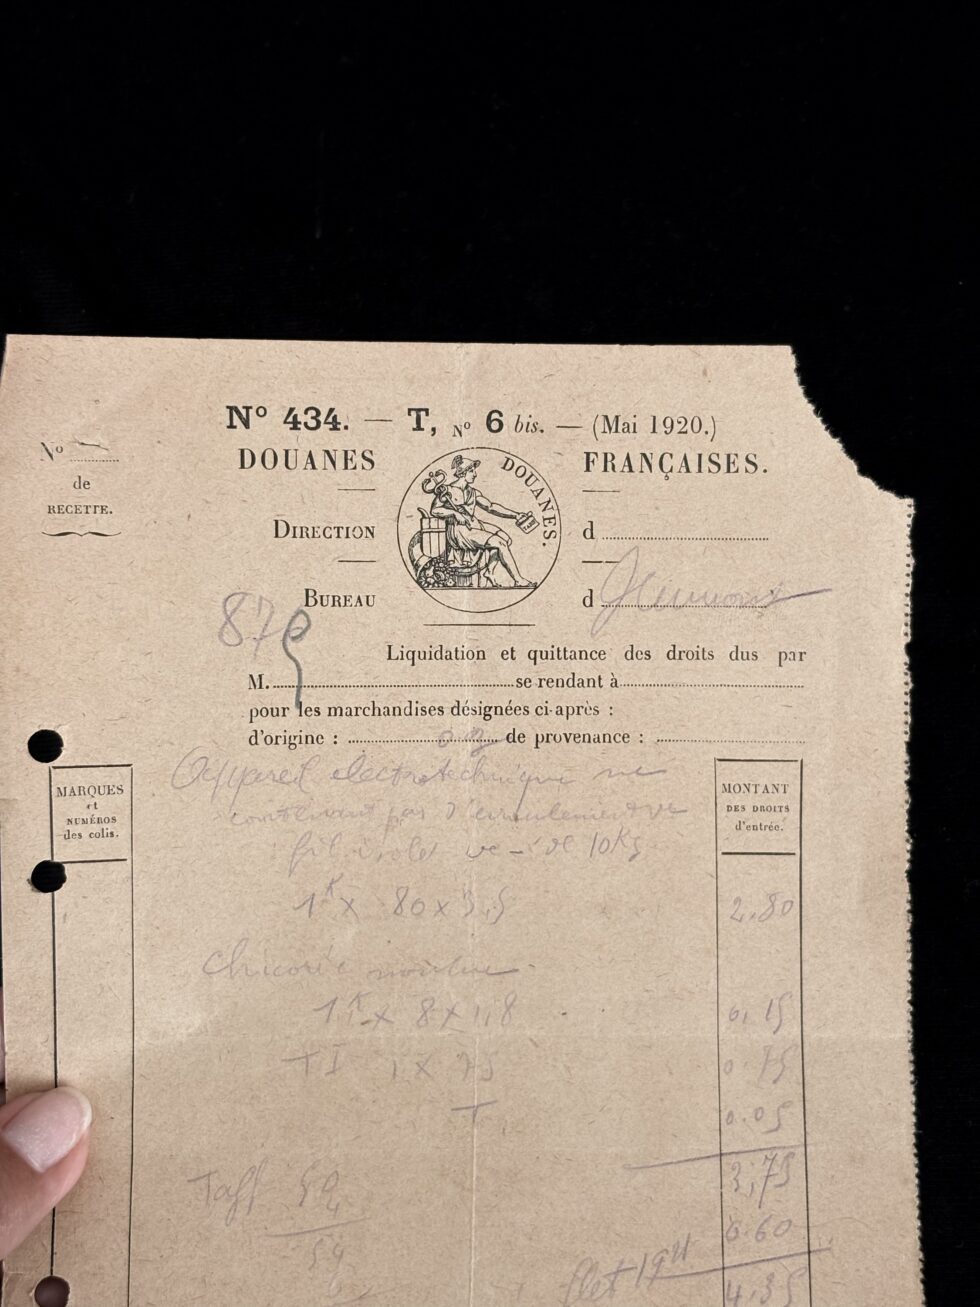 N° 434. — T, N° 6 bis. — (Mai 1920.)
N°
de
RECETTE.
DOUANES FRANÇAISES.
DOUANES.
DIRECTION d
BUREAU d Jeumont
87
Liquidation et quittance des droits dus par
M. se rendant à
pour les marchandises désignées ci-après :
d'origine : de provenance :
MARQUES
et
NUMÉROS
des colis.
MONTANT
DES DROITS
d'entrée.
Appareil electrotechnique ne
contenant pas d'enroulement
fil isolé 10Kg
1K x 80 x 3,5 2.80
Chicorée moulue
1K x 8 x 1,8 0,15
TI 1 x 75 0.75
T 0.05
3,75
Taff 50 0.60
4
54 4.35